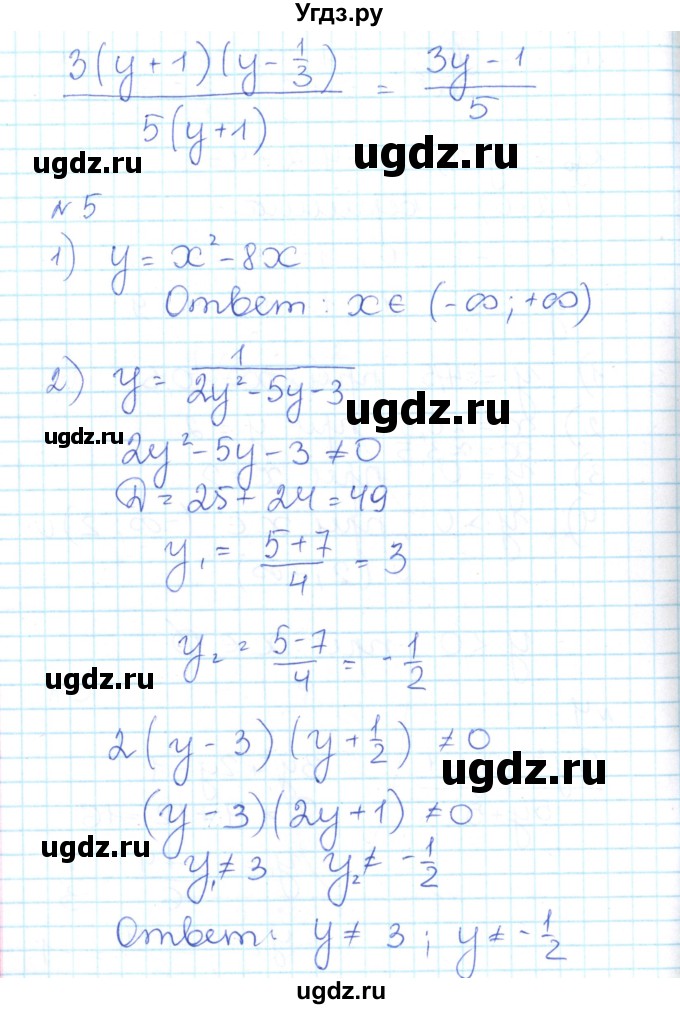 Угдз.ру
3(y+1)(y-1/3) / 5(y+1) = 3y-1 / 5
ugdz.ru ugdz.ru
№ 5
1) y = x²-8x
Ответ: x∈ (-∞;+∞)
2) y = 1 / 2y²-5y-3
ugdz.ru
ugdz.ru
2y²-5y-3≠0
D = 25+24=49
y₁ = 5+7 / 4 = 3
y₂ = 5-7 / 4 = -1/2
ugdz.ru
2(y-3)(y+1/2) ≠0
ugdz.ru
(y-3)(2y+1) ≠0
ugdz.ru
y₁≠3 y₂≠ -1/2
Ответ: y≠ 3; y≠-1/2
ugdz.ru